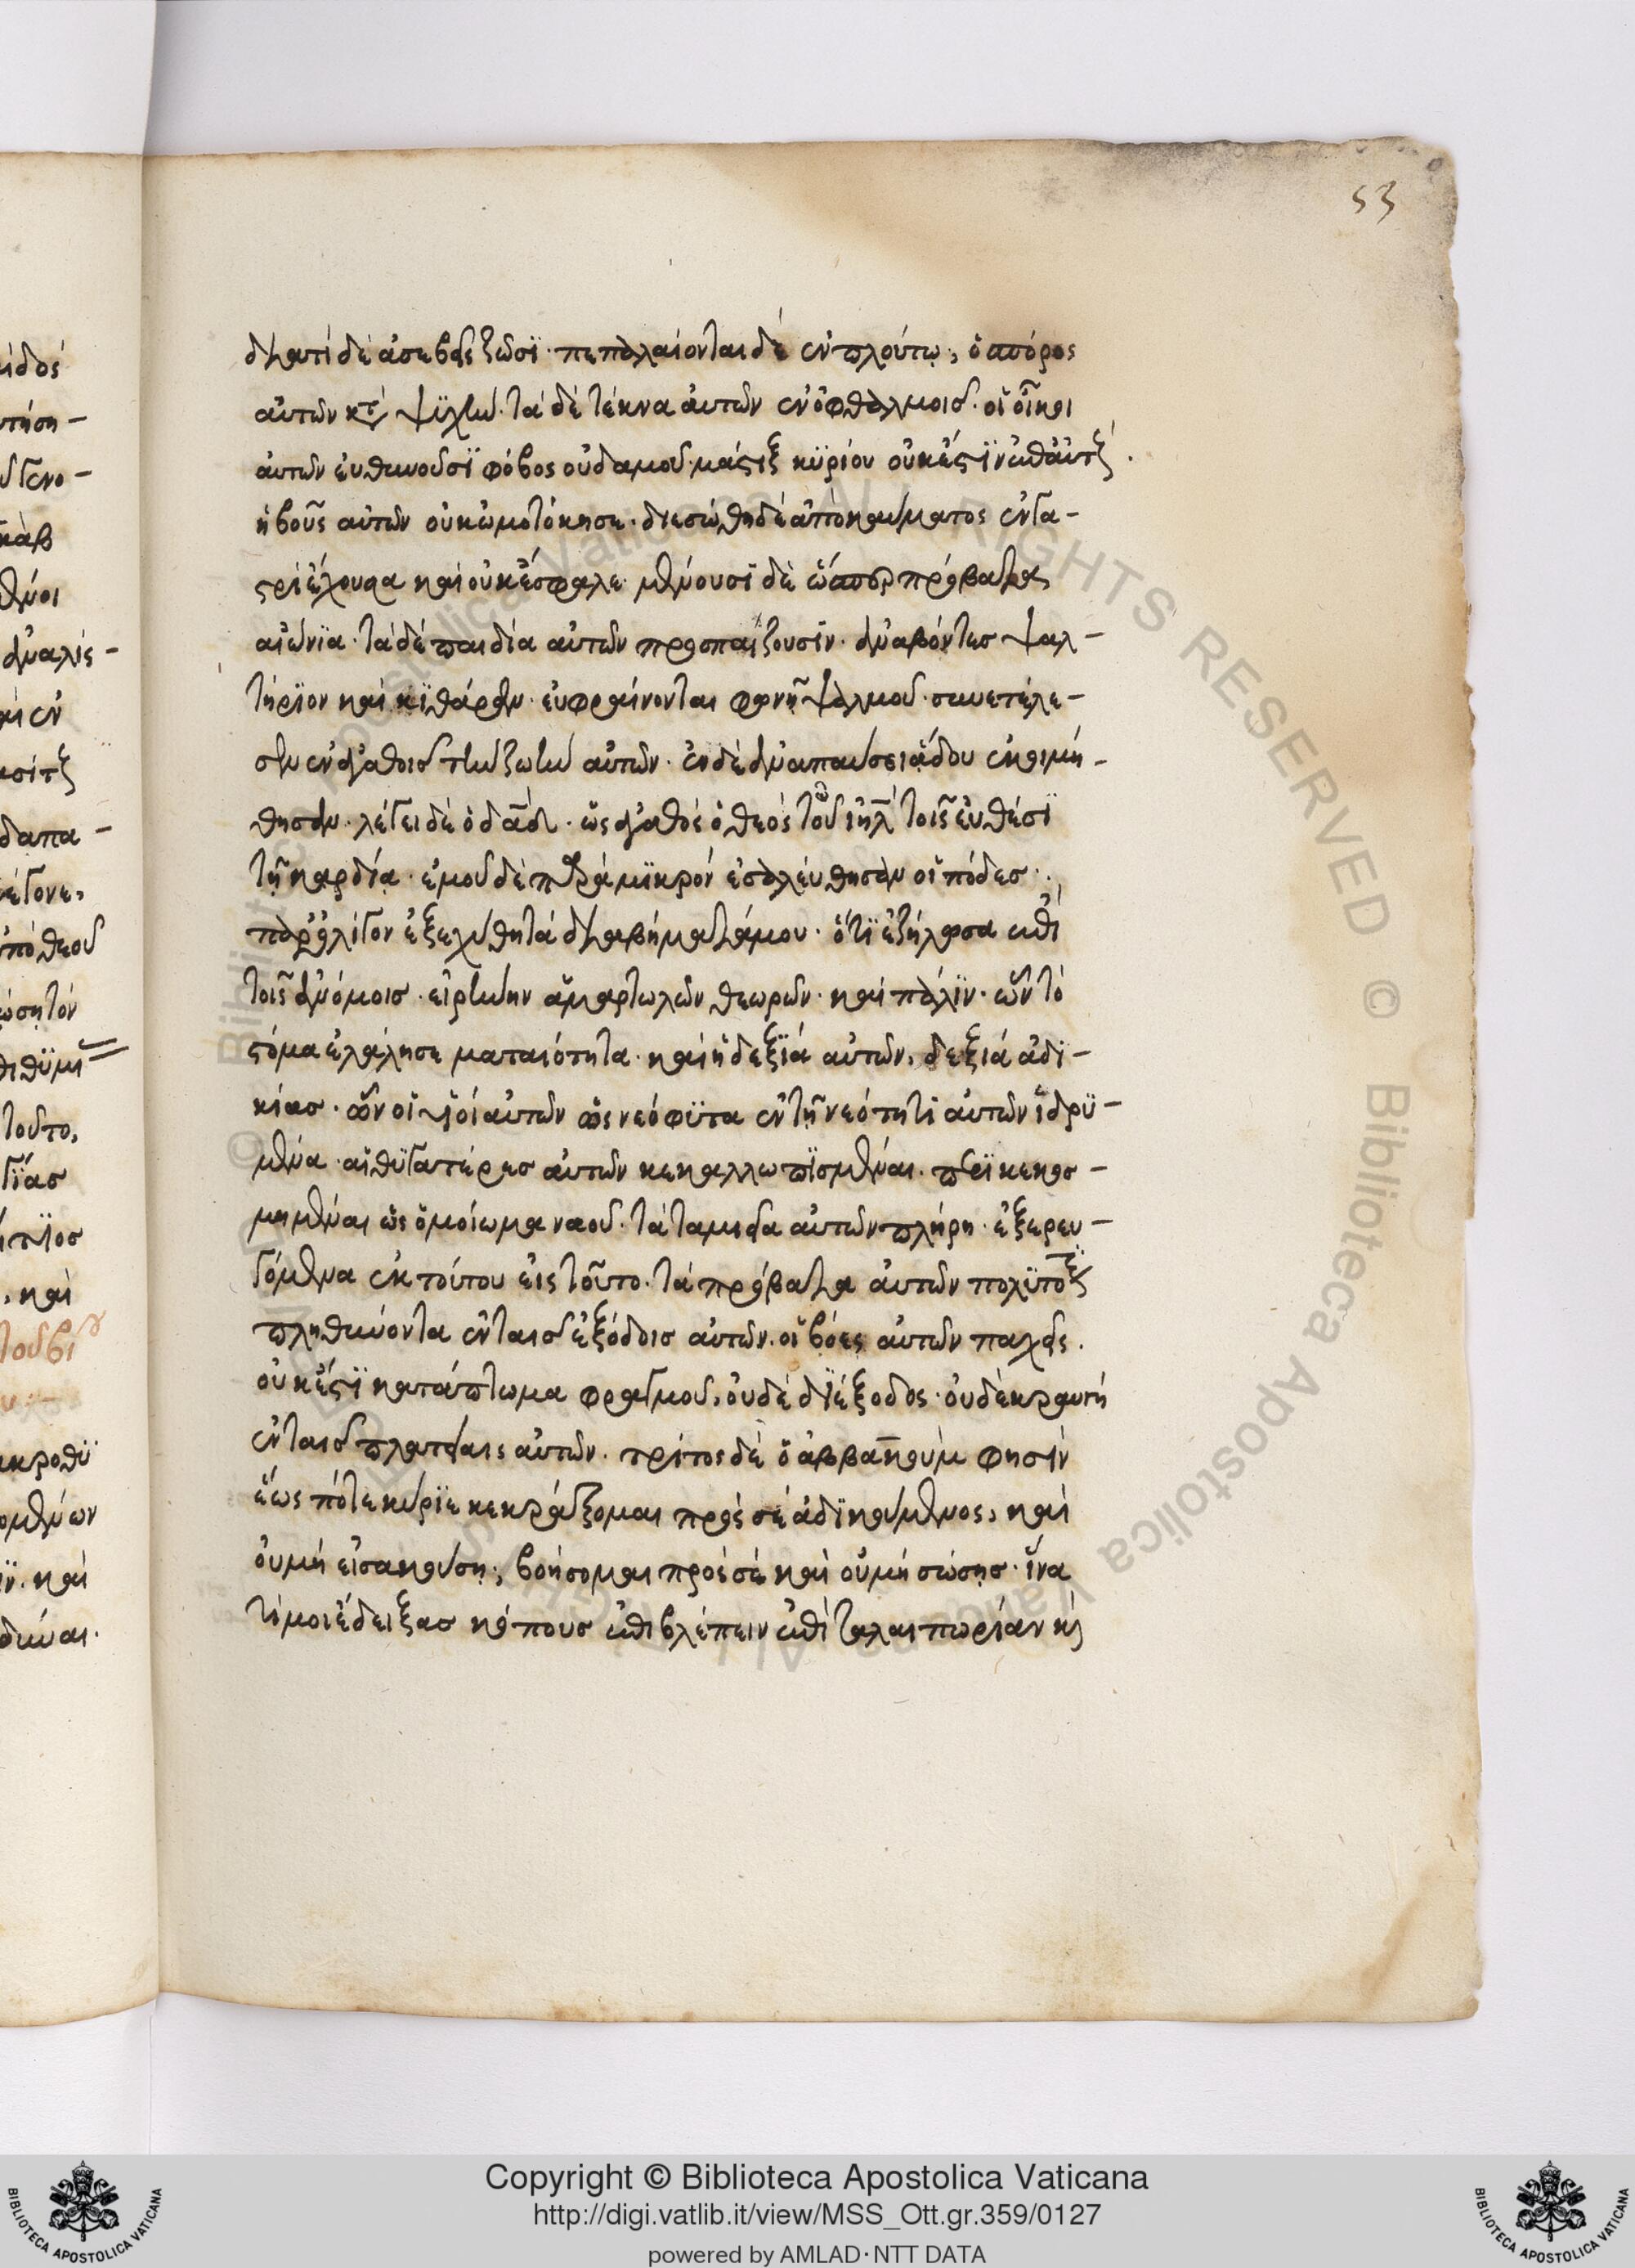 53
διατί δὲ ἀσεβεῖς ζῶσϊ· πεπαλαίονται δὲ ἐν πλούτω; ὁ σπόρος
αὐτῶν κτ ψϋχὴν· τὰ δὲ τέκνα αὐτῶν ἐν ὀφθαλμοῖς· οἱ οἶκοι
αὐτῶν εὐθηνοῦσϊ φόβος οὐδαμοῦ· μάστιξ κϋρίου οὐκ ἔστϊν ἐπ αὐτοῖς·
ἡ βοῦς αὐτῶν οὐκ ὠμοτόκησε· διεσώθη δὲ ἀπὸ καύματος ἐν γα-
στρὶ ἔχουσα καὶ οὐκ ἔσφαλε· μένουσϊ δὲ ὥσπερ πρόβατα
αἰώνϊα· τὰ δὲ παιδία αὐτῶν προσπαίζουσϊν· ἀναβόντες ψαλ-
τήρϊον καὶ κϊθάραν· εὐφραίνονται φωνῆ ψαλμοῦ· συνετέλε-
σαν ἐν ἀγαθοῖς τὴν ζωὴν αὐτῶν· ἐν δὲ ἀναπαύσει ἅδου ἐκοιμή-
θησαν· λέγει δὲ ὁ δᾱδ· ὡς ἀγαθὸς ὁ θεὸς τοῦ ιηλ τοῖς εὐθέσϊ
τῆ καρδία· ἐμοῦ δὲ παρὰ μϊκρὸν ἐσαλεύθησαν οἱ πόδες·
παρ ὀλίγον ἐξεχύθη τὰ διαβήματά μου· ὅτϊ ἐζήλωσα ἐπὶ
τοῖς ἀνόμοις· εἰρήνην ἁμαρτωλῶν θεωρῶν· καὶ πάλϊν· ὧν τὸ
στόμα ἐλάλησε ματαιότητα· καὶ ἡ δεξϊὰ αὐτῶν, δεξιὰ ἀδι-
κίας· ὧν οἱ υἱοὶ αὐτῶν ὡς νεόφϋτα ἐν τῆ νεότητϊ αὐτῶν ἱδρϋ-
μένα· αἱ θϋγατέρες αὐτῶν κεκαλλωπϊσμέναι· περϊκεκοσ-
μημέναι ὡς ὁμοίωμα ναοῦ· τὰ ταμεῖα αὐτῶν πλήρη· ἐξερευ-
γόμενα ἐκ τούτου εἰς τοῦτο· τὰ πρόβατα αὐτῶν πολϋτόκα
πληθύνοντα ἐν ταῖς ἐξόδοις αὐτῶν· οἱ βόες αὐτῶν παχεῖς·
οὐκ ἔστϊ κατάπτωμα φραγμοῦ, οὐδὲ δϊέξοδος· οὐδὲ κραυγὴ
ἐν ταῖς πλατείαις αὐτῶν· τρίτος δὲ ὁ ἀββακούμ φησὶν
ἕως πότε κύρϊε κεκράξομαι πρὸς σὲ ἀδϊκούμενος, καὶ
οὐ μὴ εἰσακούση; βοήσομαι πρὸς σὲ καὶ οὐ μὴ σώσης· ἵνα
τί μοι ἔδειξας κόπους ἐπιβλέπειν ἐπὶ ταλαιπωρίαν καὶ
Copyright © Biblioteca Apostolica Vaticana
http://digi.vatlib.it/view/MSS_Ott.gr.359/0127
powered by AMLAD·NTT DATA
BIBLIOTECA APOSTOLICA VATICANA
BIBLIOTECA APOSTOLICA VATICANA